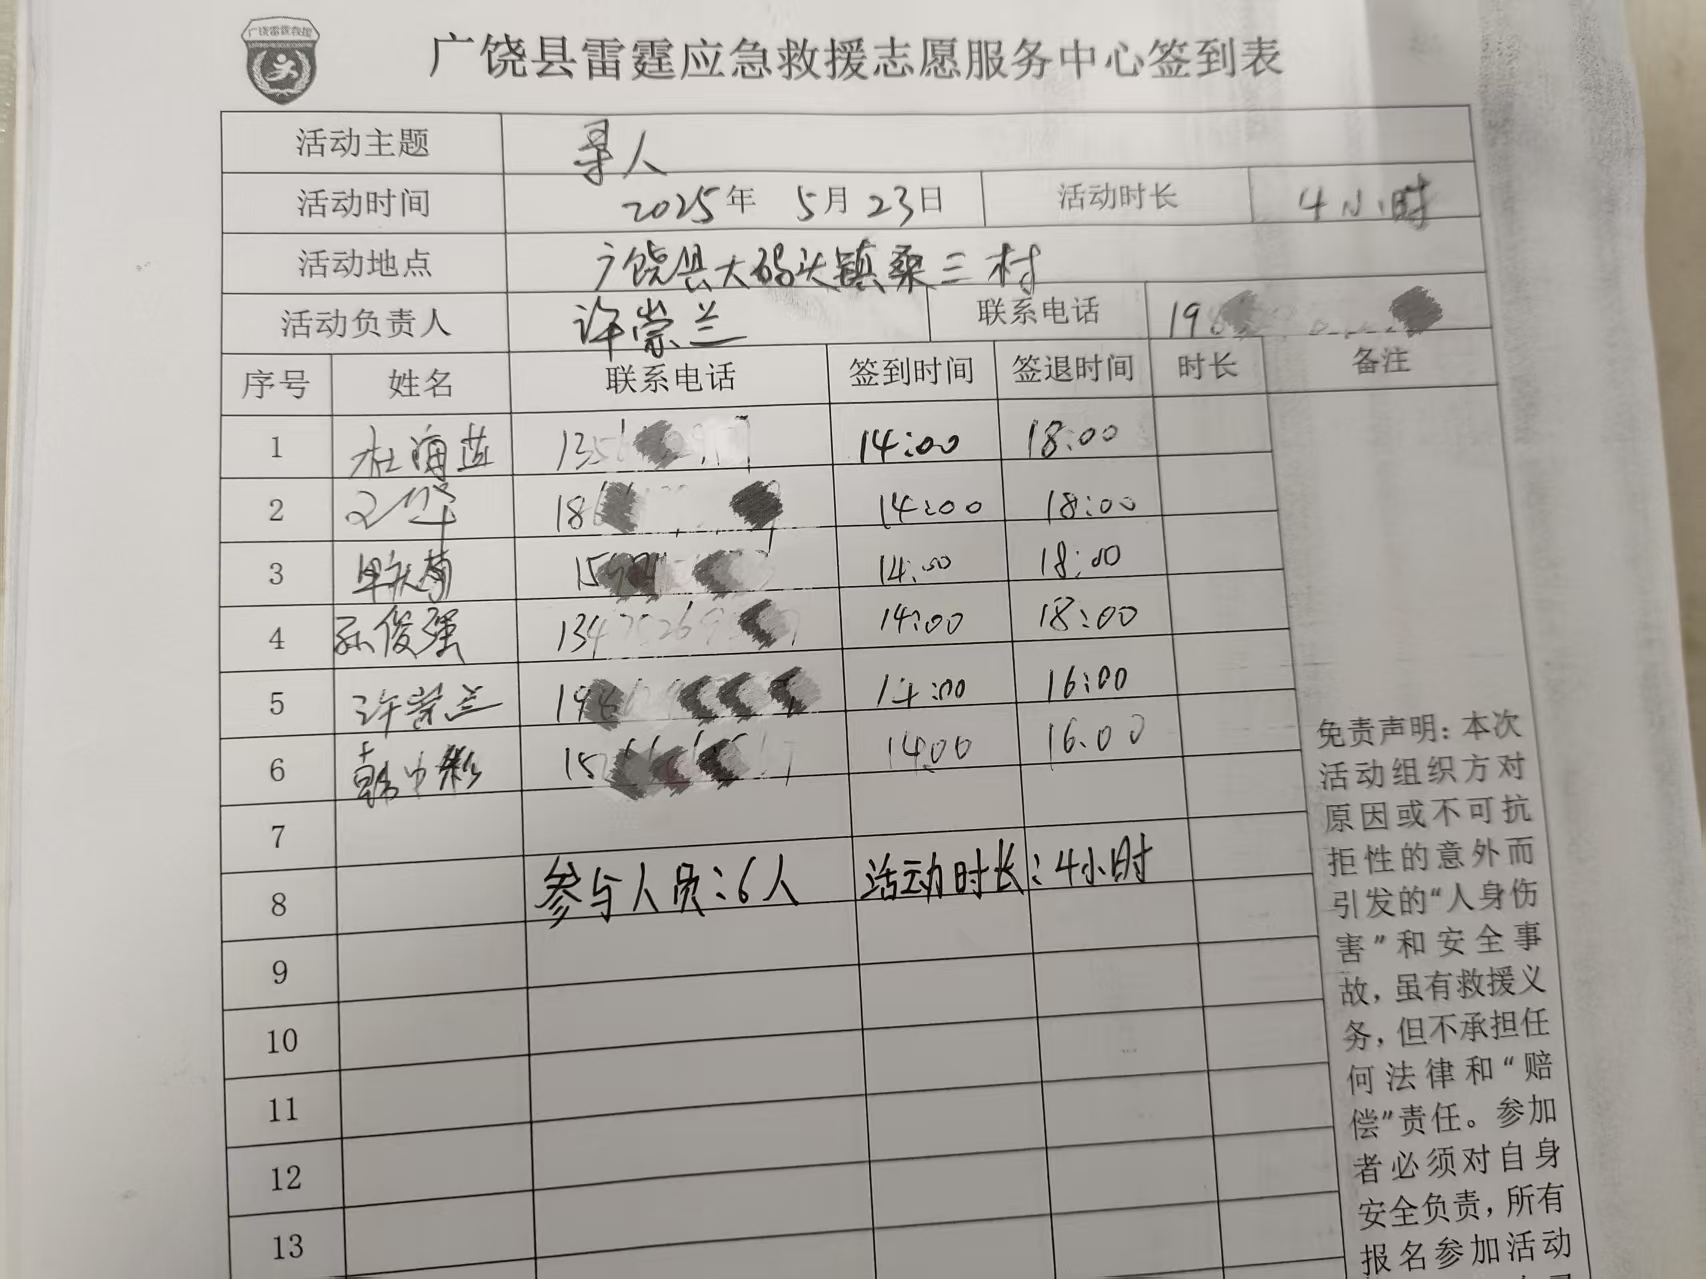 广饶雷霆救援
广饶县雷霆应急救援志愿服务中心签到表
活动主题 寻人
活动时间 2025年 5月23日 活动时长 4小时
活动地点 广饶县大码头镇桑三村
活动负责人 许崇兰 联系电话 19
序号 姓名 联系电话 签到时间 签退时间 时长 备注
1 杜海蓝 135 14:00 18:00
2 18 14:00 18:00
3 15 14:00 18:00
4 孙俊强 134 14:00 18:00
5 许崇兰 19 14:00 16:00
6 韩中彩 15 14:00 16:00
7
8 参与人员:6人 活动时长:4小时
9
10
11
12
13
免责声明:本次
活动组织方对
原因或不可抗
拒性的意外而
引发的“人身伤
害”和安全事
故,虽有救援义
务,但不承担任
何法律和“赔
偿”责任。参加
者必须对自身
安全负责,所有
报名参加活动